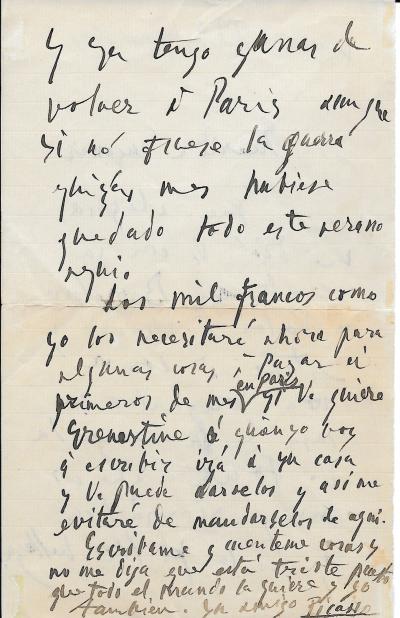 Y ya tengo ganas de
volver á Paris aunque
si nó fuese la guerra
quizás mes hubiese
quedado todo este verano
Los mil francos como
yo los necesitaré ahora para
algunas cosas á pagar á
en Paris
primeros de mes si V. quiere
Ernestine á quien yo voy
á escribir irá á su casa
y V. puede darselos y asi me
evitaré de mandarselos de aqui.
Escribame y cuenteme cosas y
no me diga que está triste puesto
que todo el mundo la quiere y yo
tambien. Su amigo Picasso